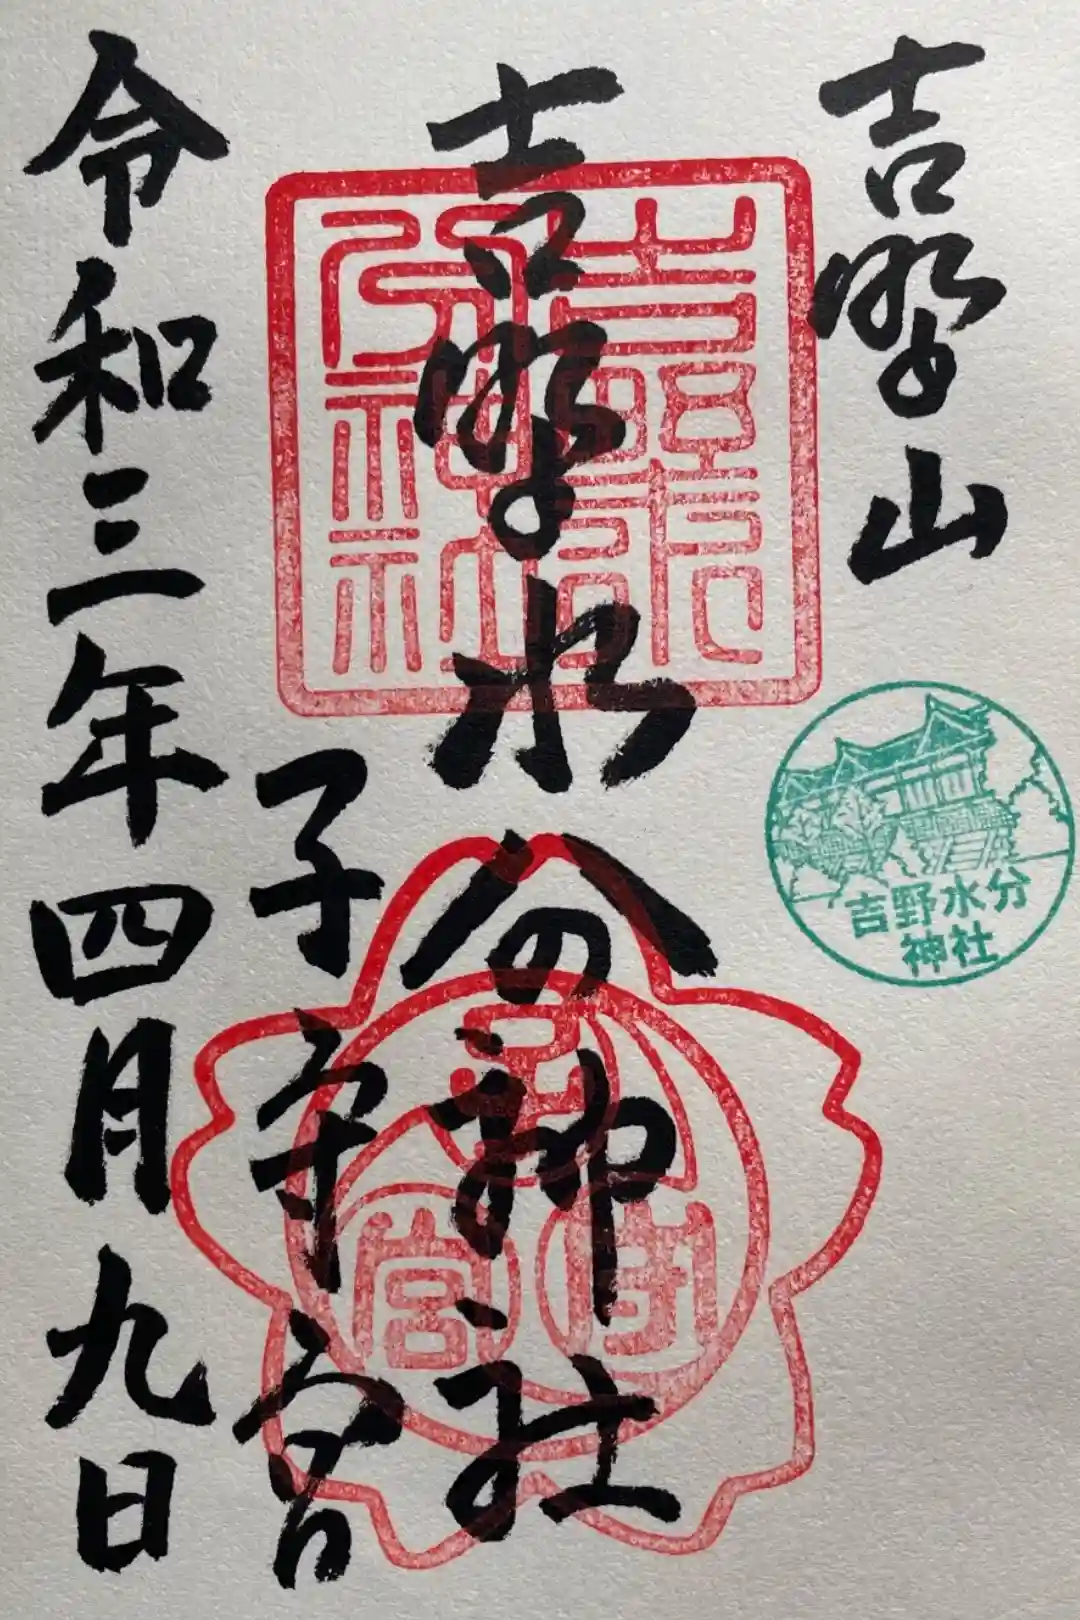 吉野山
吉野水分神社
子守宮
令和三年四月九日
吉野水分
神社
子守宮